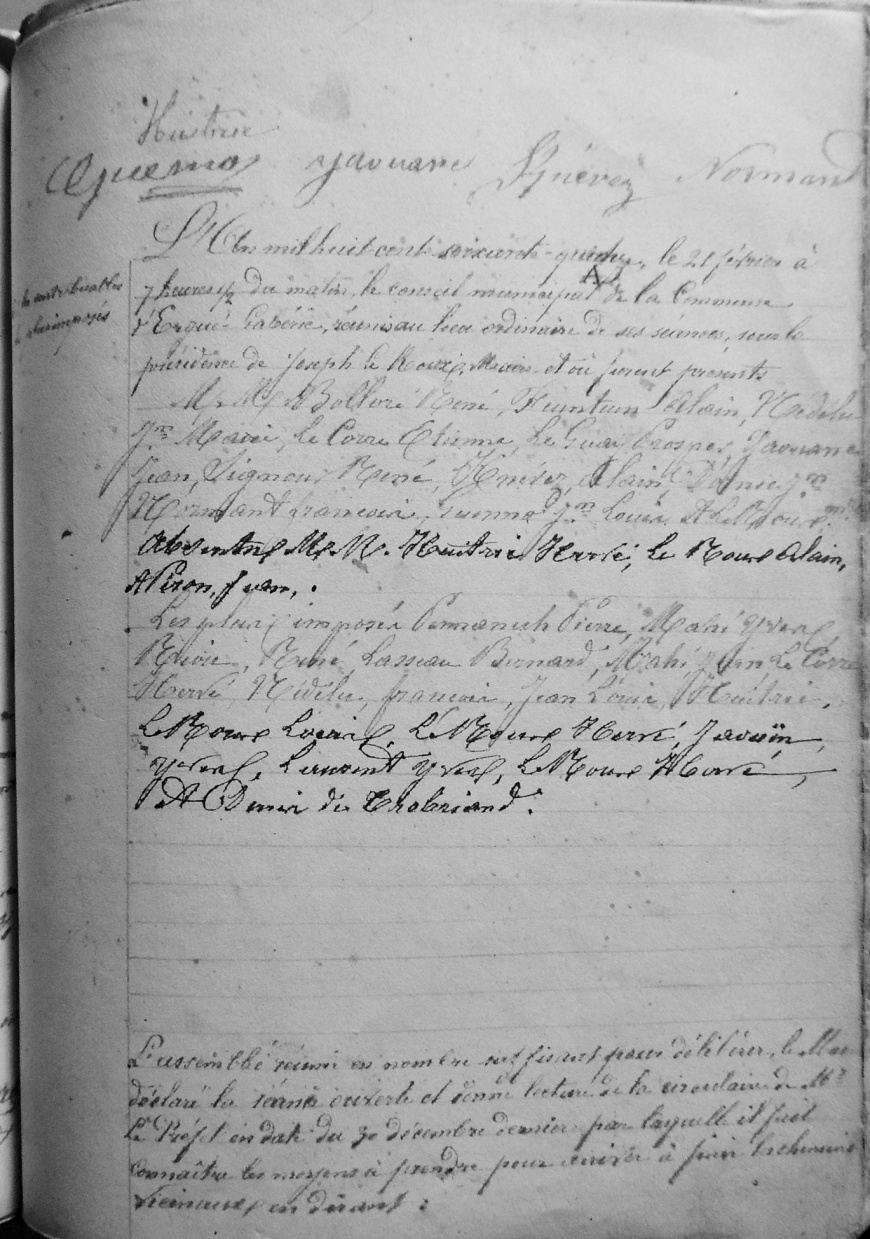 Huitric
Quemere Yaouanc Quéré Normant
L'An mil huit cent soixante-quinze, le 21 février à
7 heures ½ du matin, le conseil municipal de la Commune
d'Ergué-Gabéric, réuni au lieu ordinaire de ses séances, sous la
présidence de Joseph le Roux, Maire et où furent présents
M. M. Bolloré René, Huntum Alain, Nédélec
Jn Marie, Le Corre Etienne, Le Guay Prosper, Yaouanc
Jean, Signour René, Alain, Jn
Normant françois, Jn Louis, Et Le Roux
Absents M. M. Huitric Hervé, Le Roux Alain,
Et Piron, Jean, .
Les plus imposés Pennanech Pierre, Mahé Yves
René, Lasseau Bernard, Mahé Jean Le Corre
Hervé, Nédélec, françois, Jean Louis, Huitric,
Le Roux Louis, Le Roux Hervé,
Yves, Laurent Yves, Le Roux Hervé,
Et Denis de Trobriand.
L'assemblé réuni en nombre suffisant pour délibérer, le Maire
déclaré la séance ouverte et donné lecture de la circulaire de Mr
Le Préfet en date du 30 décembre dernier par laquelle il fait
connaître les moyens à prendre pour arriver à finir les chemins
vicinaux en disant :